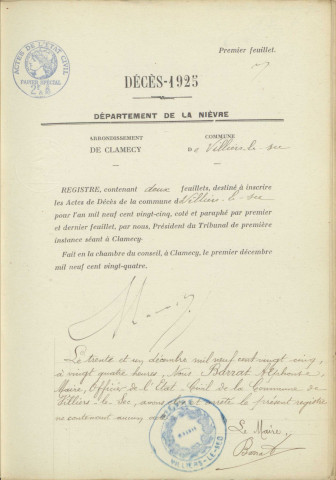 Premier feuillet.
ACTES DE L'ÉTAT CIVIL
PAPIER SPÉCIAL
DÉCÈS-1925
DÉPARTEMENT DE LA NIÈVRE
ARRONDISSEMENT
DE CLAMECY
COMMUNE
De Villiers-le-sec
REGISTRE, contenant deux feuillets, destiné à inscrire
les Actes de Décès de la commune de Villiers-le-sec
pour l'an mil neuf cent vingt-cinq, coté et paraphé par premier
et dernier feuillet, par nous, Président du Tribunal de première
instance séant à Clamecy.
Fait en la chambre du conseil, à Clamecy, le premier décembre
mil neuf cent vingt-quatre.
Le trente et un décembre mil neuf cent vingt cinq,
à vingt quatre heures, Nous Barrat Alphonse
Maire, Officier de l'Etat-Civil de la Commune de
Villiers-le-Sec, avons arrêté le présent registre
ne contenant aucun
MAIRIE
VILLIERS-LE-SEC
Le Maire
Barrat